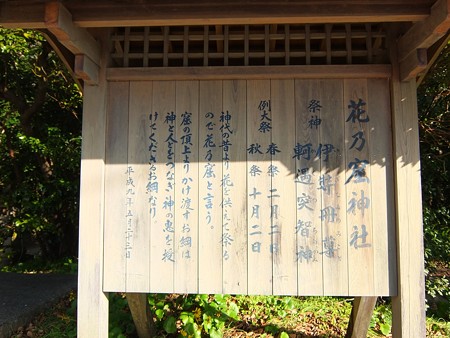 花乃窟神社
祭神 伊弉冊尊
軻遇突智神
例大祭 春祭 二月二日
秋祭 十月二日
神代の昔より花を供えて祭る
ので花乃窟と言う。
窟の頂上よりかけ渡すお綱は
神と人とをつなぎ神の恵を授
けてくださるお綱なり
平成九年五月二十三日